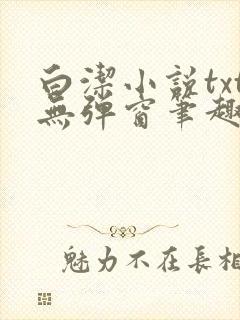 白潔小説txt
無彈窗筆趣
魅力不在長相